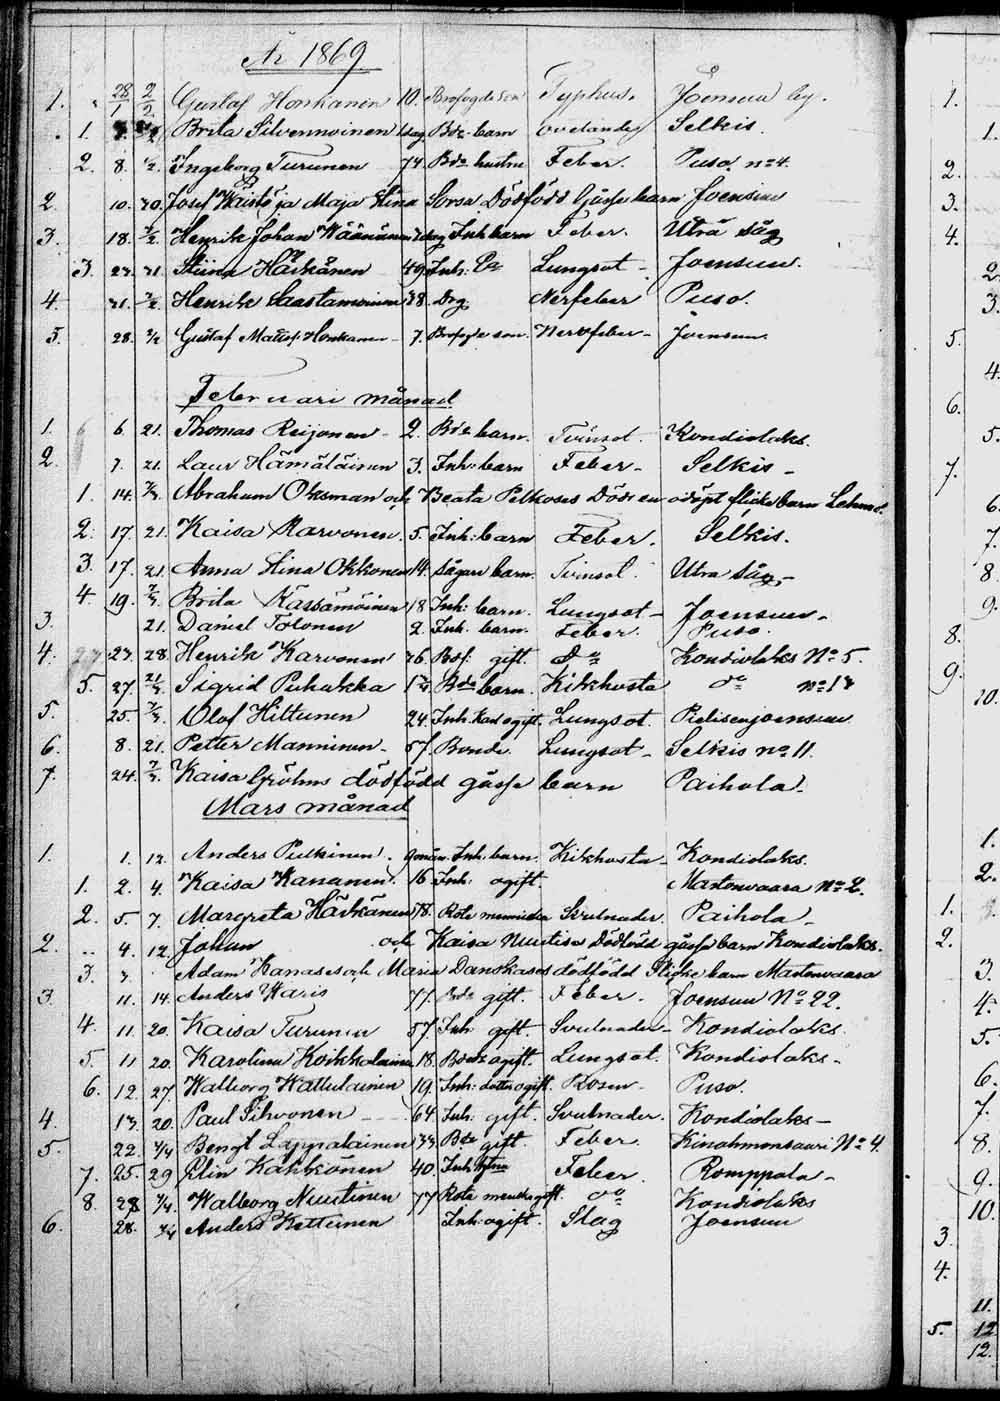 År 1869.
1. 28/1 2/2 Gustaf Honkanen 10. Brofogde son Typhus. Joensuu by.
1. Brita Silvennoinen 1 dag. Bde barn ovetande Selkis.
2. 8. 1/2. Ingeborg Turunen 74. Bde hustru Feber. Puso. no 4.
2. 10. 30. Josef Wäistö ja Maja Stina Sorsa Dödfödd Gosse barn Joensuu
3. 18. 7/2. Henrik Johan Wäänänen dag Inh barn Feber. Utra såg
3. 27. 31. Stiina Härkönen 49. Inh: Lungsot - Joensuu.
4. 31. 7/2. Henrik Saastamoinen 38. Drg. Nerfeber Puso.
5. 28. 2/2 Gustaf Matts: Honkanen - 7. Brofogde son - Nervfeber - Joensuu.
Februari månad
1. 6. 21. Thomas Reijonen - 2. Bde barn. Tvinsot. Kondiolaks.
2. 7. 21. Laur Hämäläinen 3. Inh: barn Feber - Selkis -
1. 14. 7/3. Abraham Oksman och Beata Pelkoses Döde en odöpt flicke barn Lehmo.
2. 17. 21. Kaisa Karvonen. 5. Inh: barn Feber. Selkis.
3. 17. 21. Anna Stina Okkonen 14. sågare barn. Tvinsot. Utra Såg -
4. 19. 7/3. Brita Kässämöinen 18 Inh: barn. Lungsot - Joensuu -
3. 21. Daniel Tolonen 2. Inh. barn. Feber. Puso.
4. 27. 28. Henrik Karvonen 36. Bds. gift. Do Kondiolaks No 5.
5. 27. 21/3. Sigrid Puhakka 1 3/4. Bde barn. Kikhosta do no 18
5. 25. 7/3. Olof Hiltunen 24. Inh. Karl ogift. Lungsot. Pielisenjoensuu
6. 8. 21. Petter Manninen - 57. Bonde. Lungsot - Selkis no 11.
7. 24. 7/3. Kaisa Gröhns dödfödd gosse barn Paihola.
Mars månad
1. 1. 12. Anders Pulkinen. 9 mån. Inh. barn. Kikhosta - Kondiolaks.
1. 2. 4. Kaisa Kananen. 16 Inh: ogift. Martonvaara No 2.
2. 5. 7. Margreta Härkönen 78. Rote menniska Svulnader. Paihola -
2. 4. 12. Johan och Kaisa Nuutises Dödfödd gosse barn Kondiolaks.
3. 7. Adam Kanases och Maria Danskases dödfödd Flicke barn Martonvaara
3. 11. 14. Anders Waris 77. Bde gift. Feber. Joensuu No 22.
4. 11. 20. Kaisa Turunen 57. Inh gift. Svulnader - Kondiolaks.
5. 11 20. Karolina Koikkalainen 18. Bonde ogift. Lungsot. Kondiolaks -
6. 12. 27. Walborg Wattulainen 19. Inh: dotter ogift. Rosen - Puso.
4. 13. 20. Paul Sihvonen 64. Inh: gift. Svulnader. Kondiolaks -
5. 22. 4/4 Bengt Lappalainen 33. Bde gift. Feber. Kinahmonsaari No 4.
7. 25. 29. Elin Kakkonen 40. Inh. Feber. Romppala -
8. 28 4/4. Walborg Nuutinen 77 Rote menska gift. do Kondiolaks
6. 28. 4/4 Anders Kettunen Inh: ogift. Slag Joensuu
1.
1.
2.
2.
3.
4.
2.
3.
5.
4.
6.
5.
7.
6.
7.
8.
9.
8.
9.
10.
1.
2.
1.
2.
3.
4.
5.
6.
7.
8.
9.
10.
3.
4.
11.
5. 12
12.